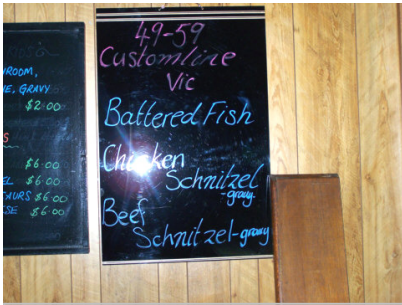 ROOM,
E, GRAVY
$2.00
$6.00
EL $6.00
TAURS $6.00
ESE $6.00
49-59
Customline
Vic
Battered Fish
Chicken
Schnitzel
-gravy
Beef
Schnitzel-gravy